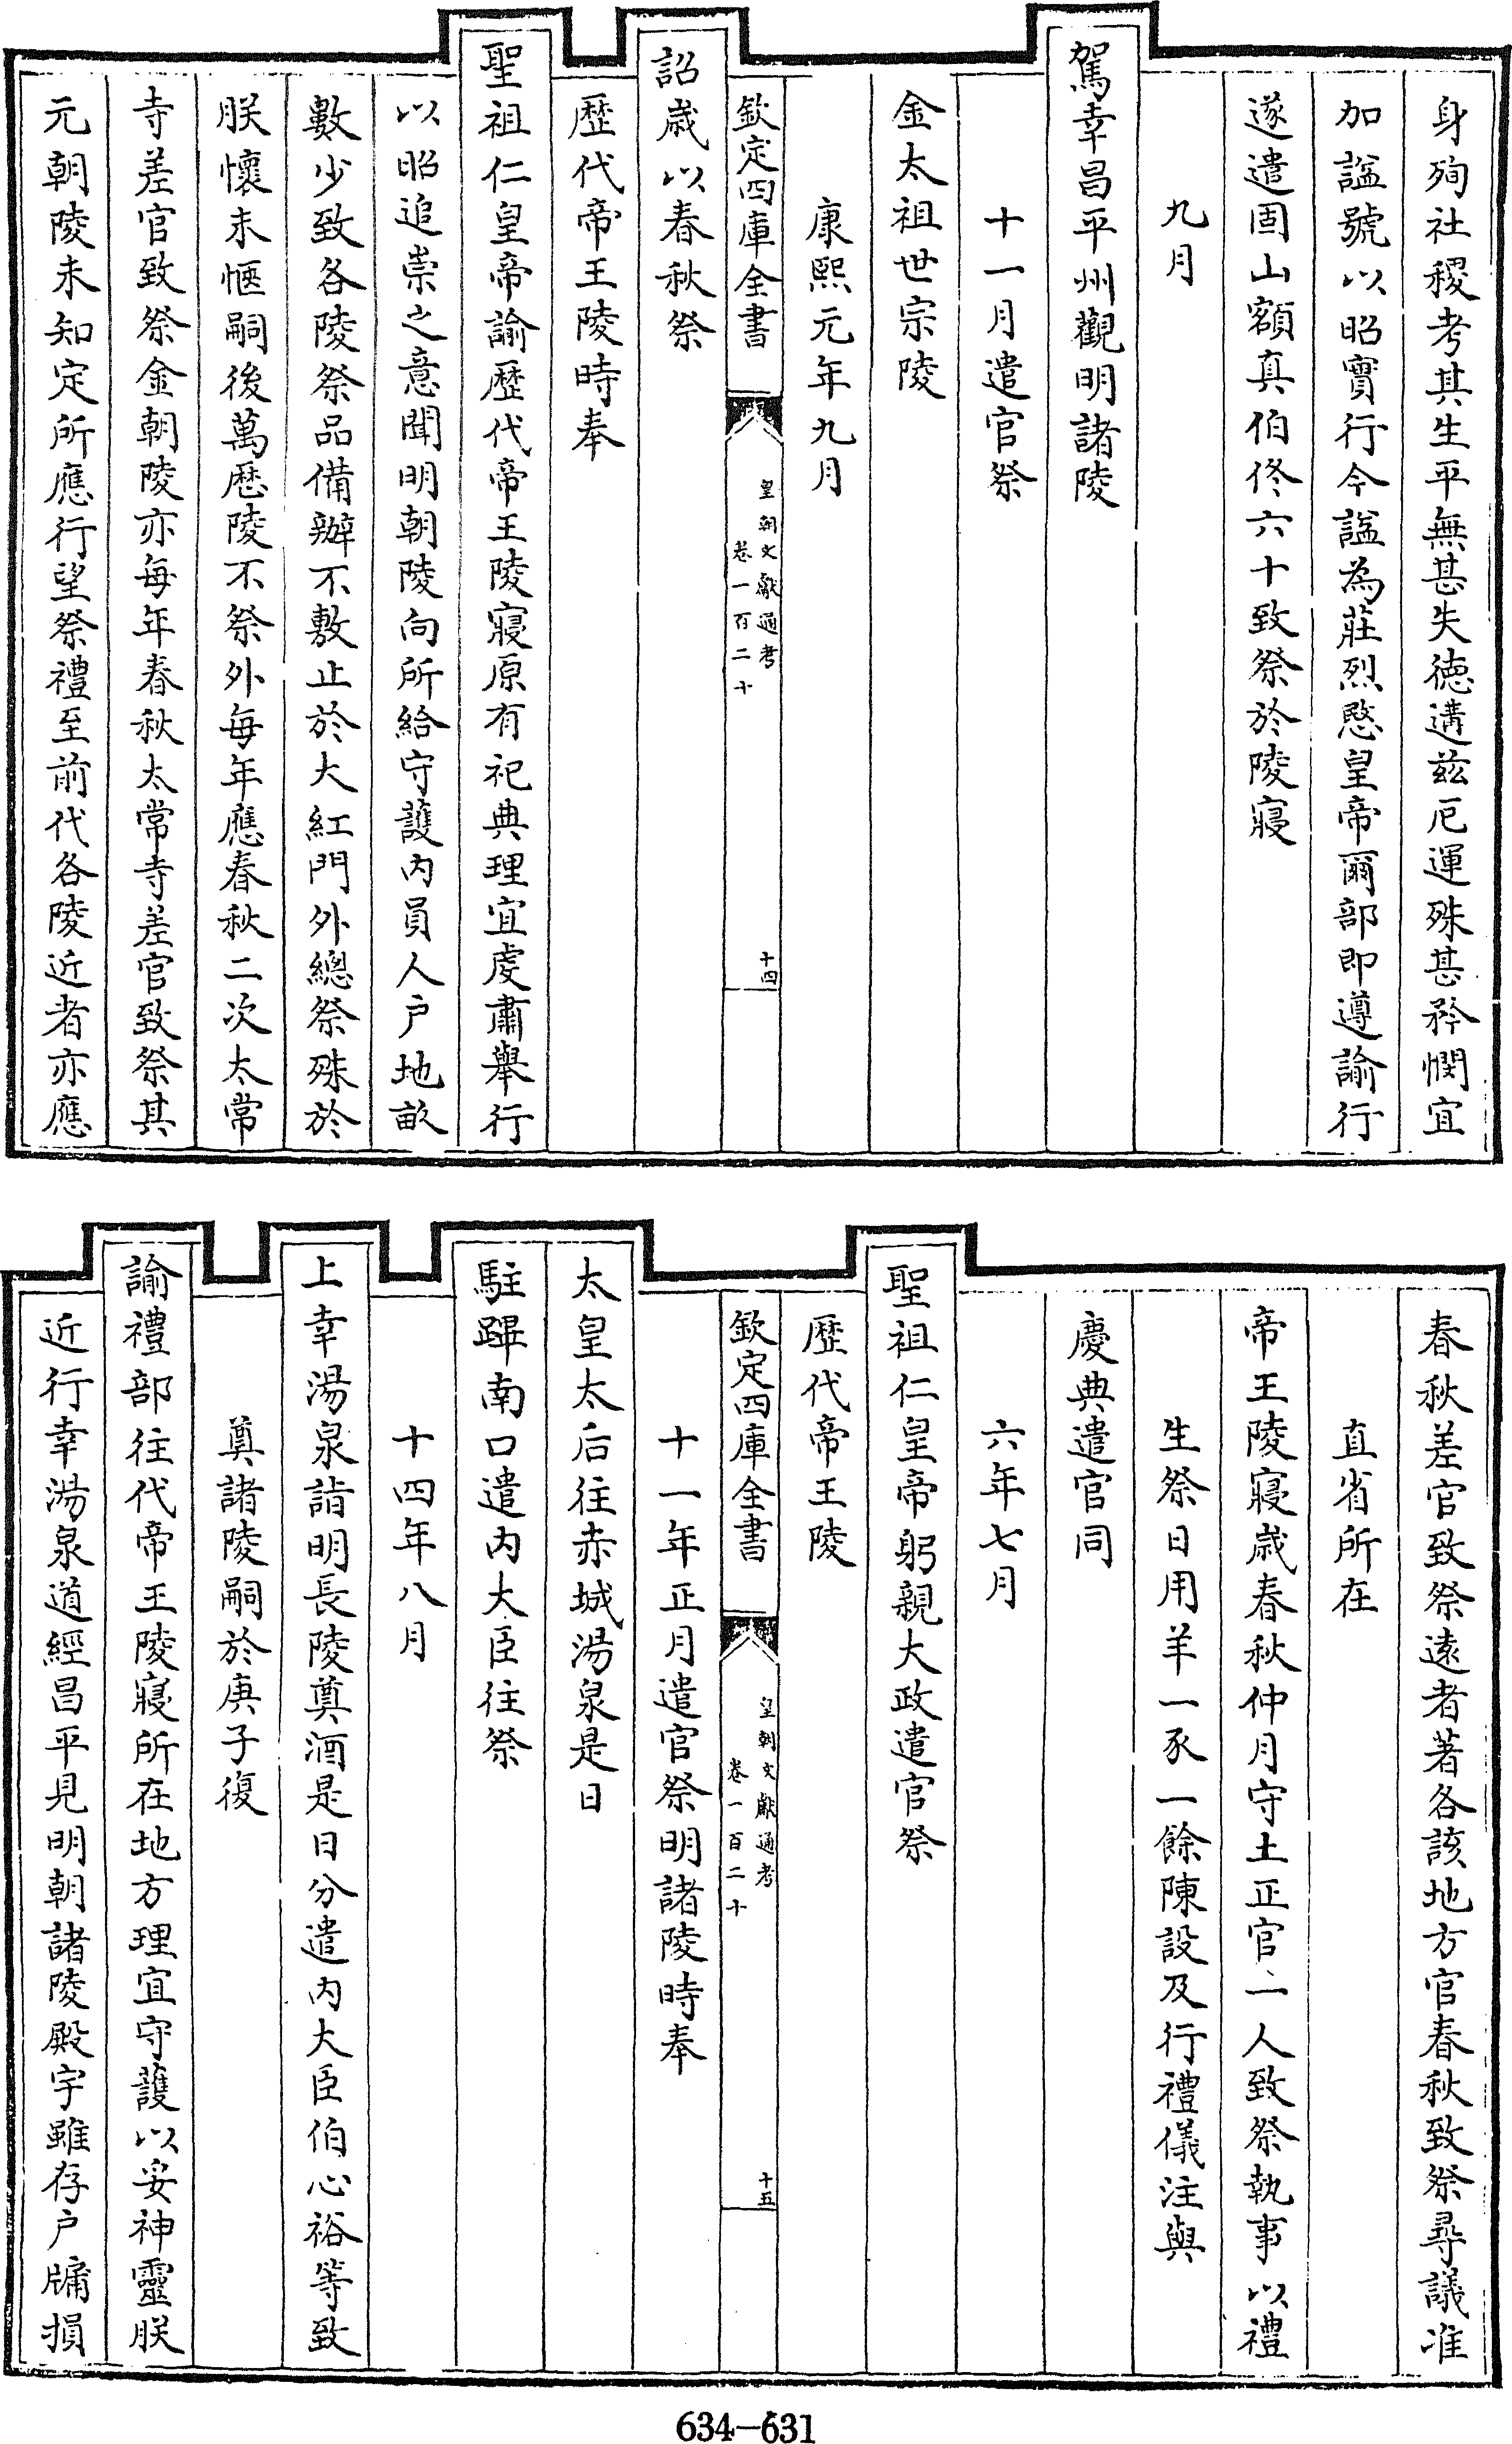 身殉社稷考其生平無甚失徳遘兹厄運殊甚矜憫宜
加諡號以昭實行今諡為莊烈愍皇帝爾部即遵諭行
遂遣固山額真伯佟六十致祭於陵寢
九月
駕幸昌平州觀明諸陵
十一月遣官祭
金太祖世宗陵
康熙元年九月
欽定四庫全書
皇朝文獻通考
卷一百二十
十四
詔歲以春秋祭
歷代帝王陵時奉
聖祖仁皇帝諭歷代帝王陵寢原有祀典理宜虔肅舉行
以昭追崇之意聞明朝陵向所給守護内員人户地畝
數少致各陵祭品備辦不敷止於大紅門外總祭殊於
朕懷未愜嗣後萬歷陵不祭外每年應春秋二次太常
寺差官致祭金朝陵亦每年春秋太常寺差官致祭其
元朝陵未知定所應行望祭禮至前代各陵近者亦應
春秋差官致祭遠者著各該地方官春秋致祭尋議准
直省所在
帝王陵寢歲春秋仲月守土正官一人致祭執事以禮
生祭日用羊一豕一餘陳設及行禮儀注與
慶典遣官同
六年七月
聖祖仁皇帝躬親大政遣官祭
歷代帝王陵
欽定四庫全書
皇朝文獻通考
卷一百二十
十五
十一年正月遣官祭明諸陵時奉
太皇太后往赤城湯泉是日
駐蹕南口遣内大臣往祭
十四年八月
上幸湯泉詣明長陵奠酒是日分遣内大臣伯心裕等致
奠諸陵嗣於庚子復
諭禮部往代帝王陵寢所在地方理宜守護以妥神靈朕
近行幸湯泉道經昌平見明朝諸陵殿宇雖存户牖損
634-631